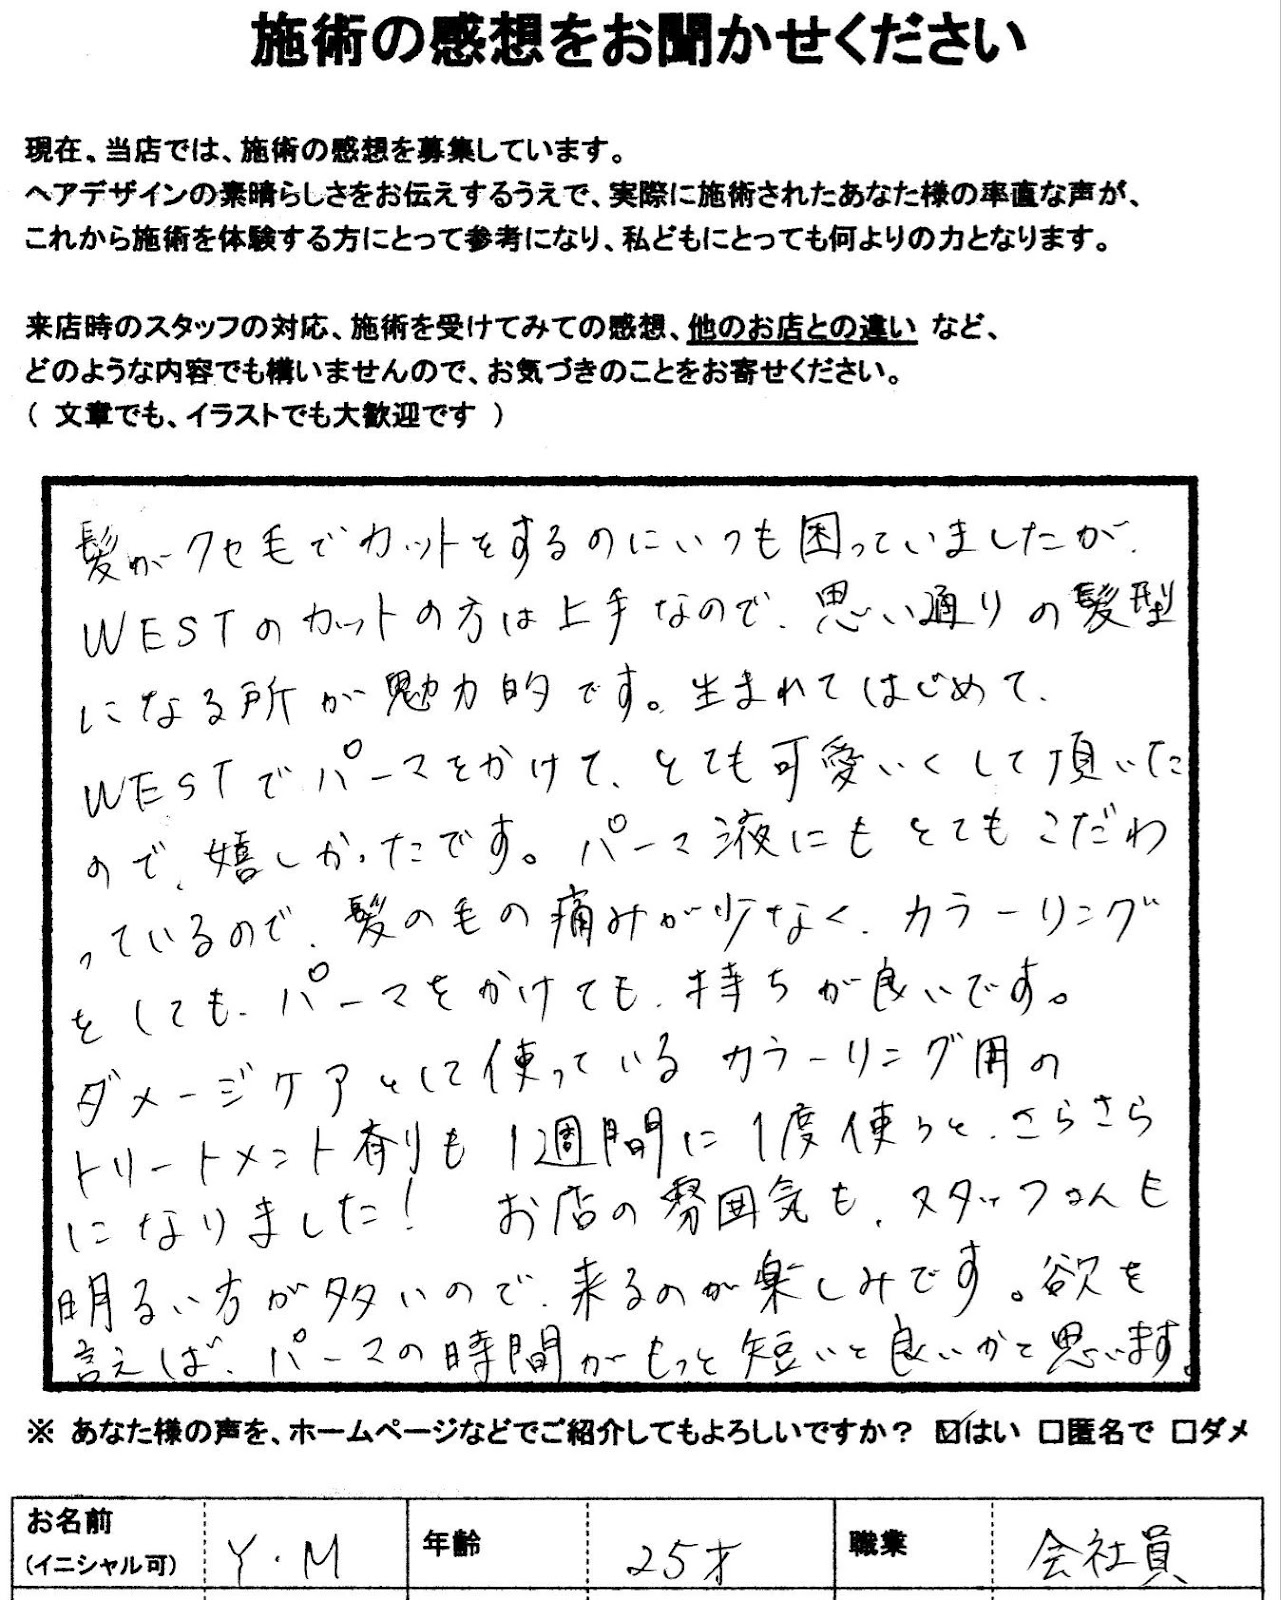 施術の感想をお聞かせください
現在、当店では、施術の感想を募集しています。
ヘアデザインの素晴らしさをお伝えするうえで、実際に施術されたあなた様の率直な声が、
これから施術を体験する方にとって参考になり、私どもにとっても何よりの力となります。
来店時のスタッフの対応、施術を受けてみての感想、他のお店との違い など、
どのような内容でも構いませんので、お気づきのことをお寄せください。
( 文章でも、イラストでも大歓迎です )
髪がクセ毛でカットをするのにいつも困っていましたが、
WESTのカットの方は上手なので、思い通りの髪型
になる所が魅力的です。生まれてはじめて、
WESTでパーマをかけて、とても可愛いくして頂いた
ので、嬉しかったです。パーマ液にもとてもこだわ
っているので、髪の毛の痛みが少なく、カラーリング
をしても、パーマをかけても、持ちが良いです。
ダメージケアとして使っているカラーリング用の
トリートメント剤も1週間に1度使うと、さらさら
になりました! お店の雰囲気も、スタッフさんも
明るい方が多いので、来るのが楽しみです。欲を
言えば、パーマの時間がもっと短いと良いかと思います。
※ あなた様の声を、ホームページなどでご紹介してもよろしいですか? ☑はい □匿名で □ダメ
お名前 (イニシャル可) Y.M 年齢 25才 職業 会社員